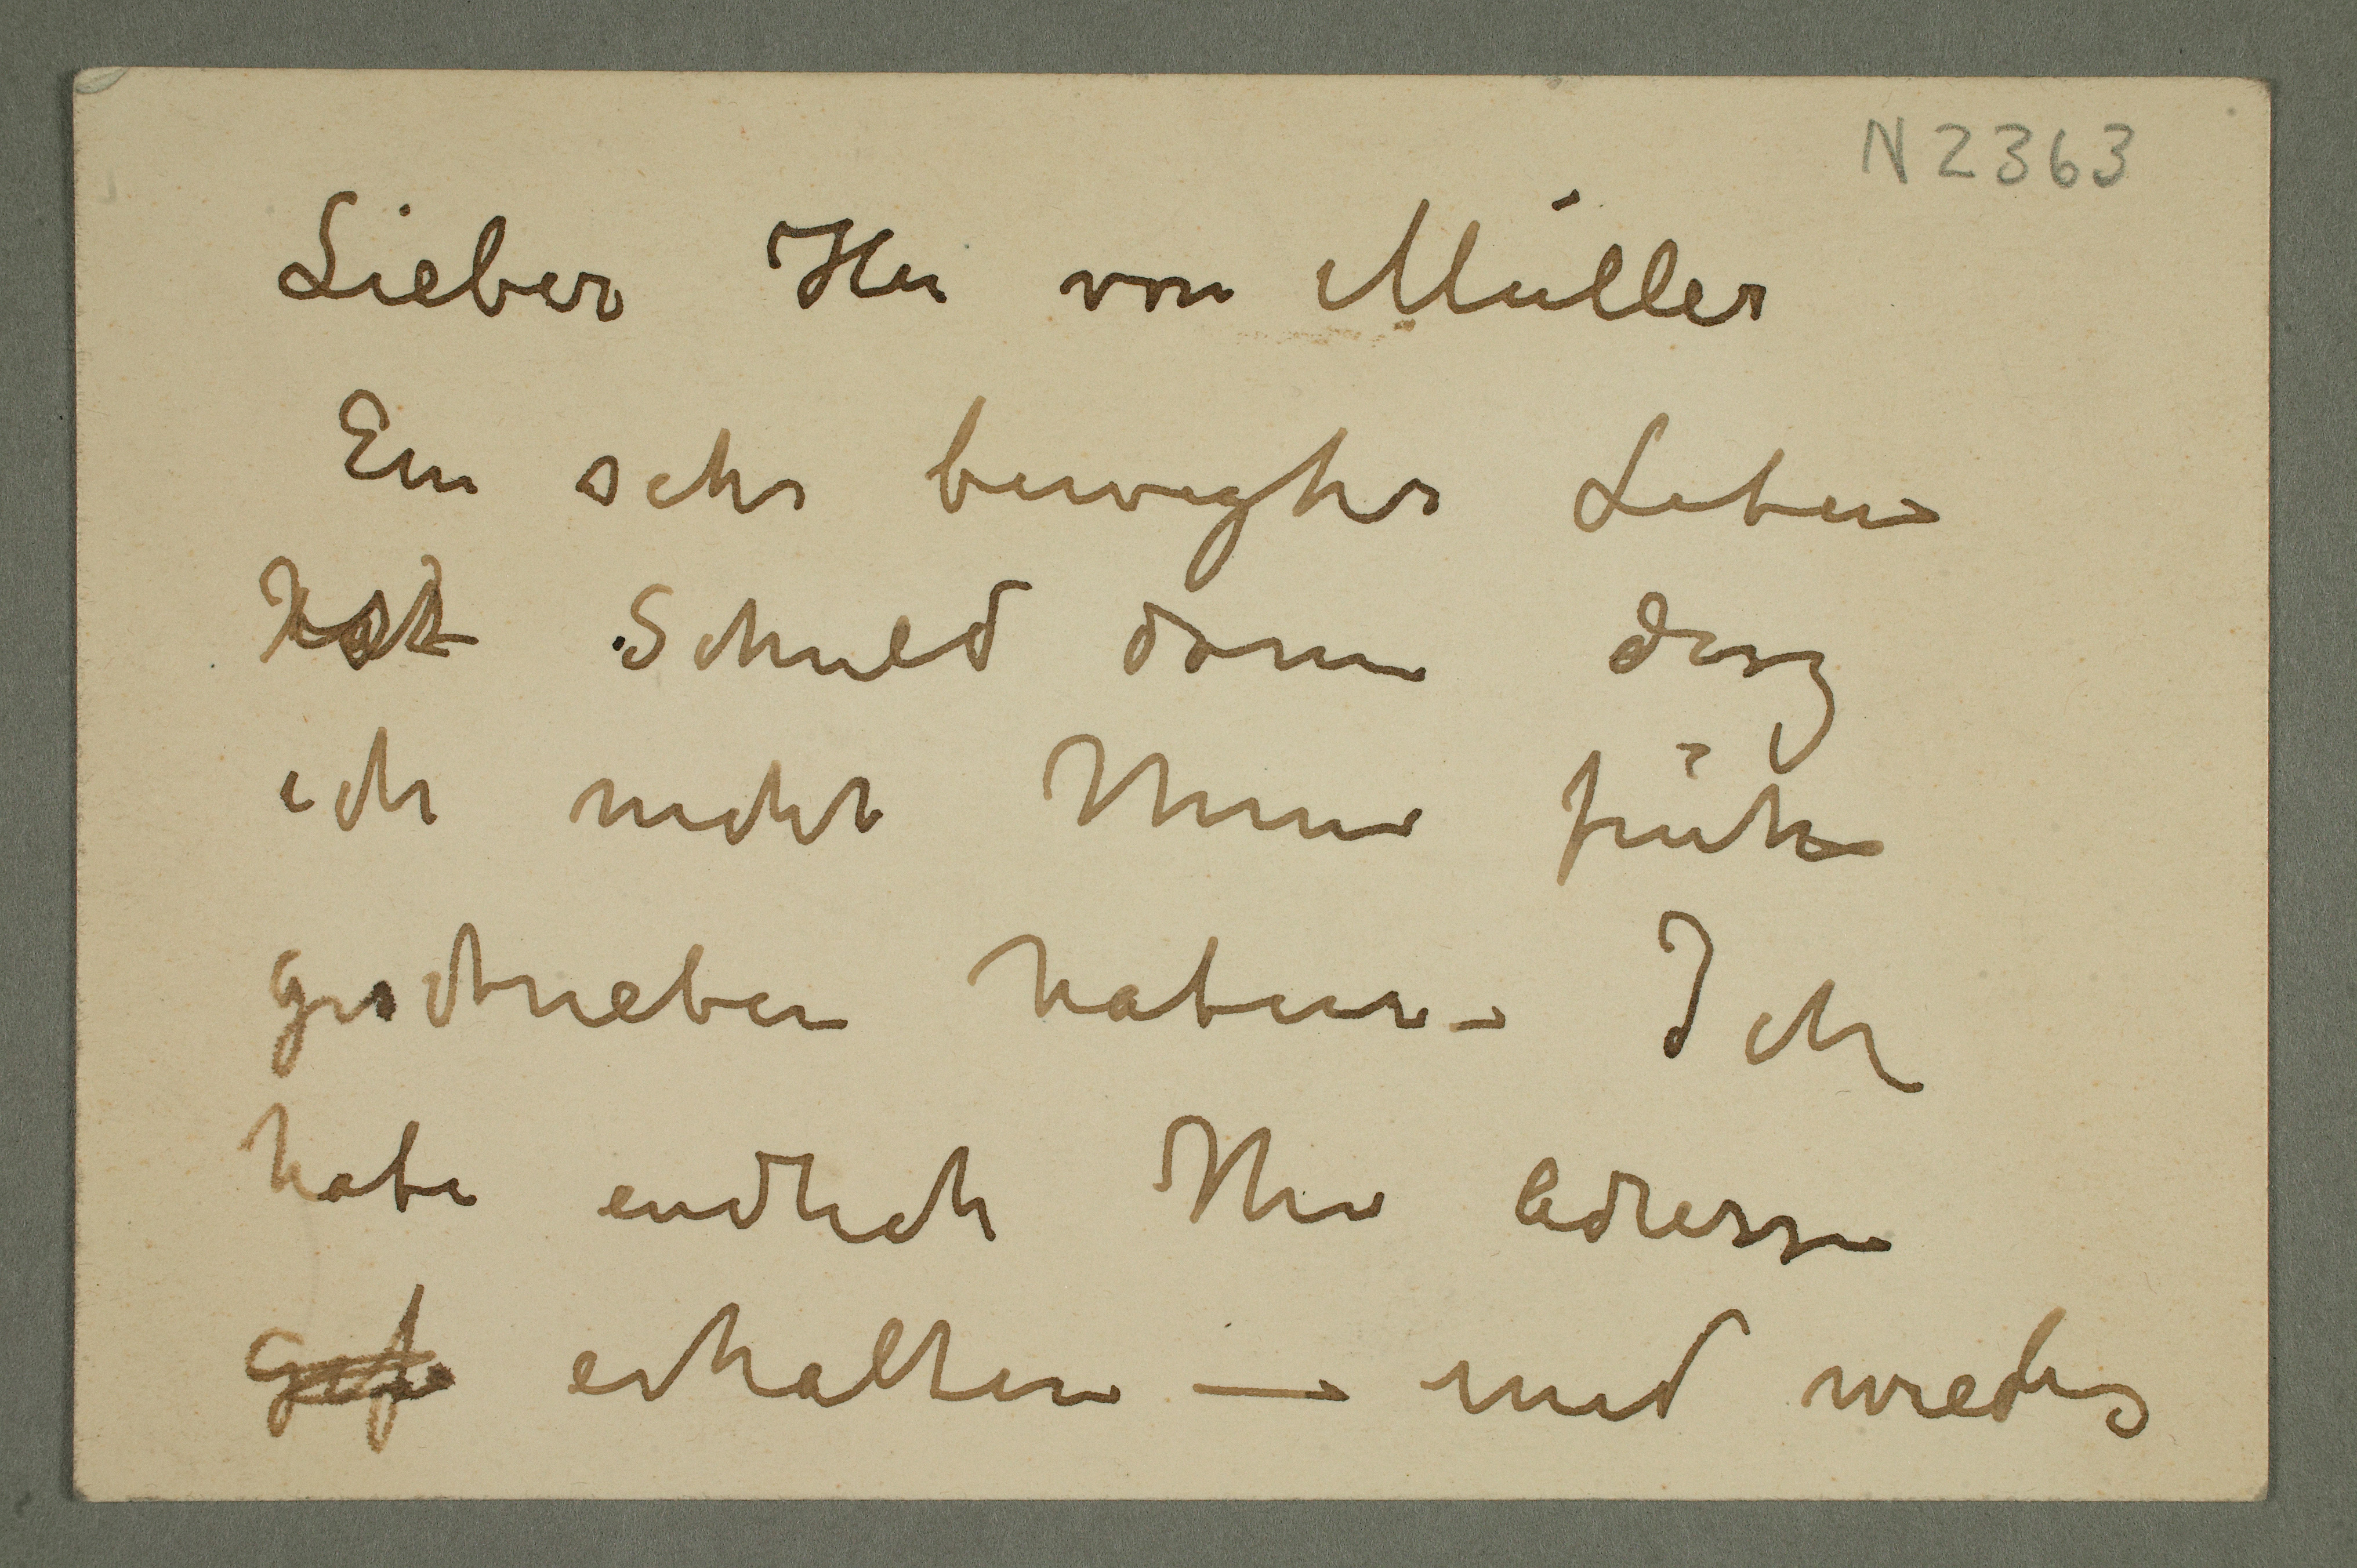 N2363
Lieber Herr von Müller
Ein sehr bewegtes Leben
ist Schuld daran dasz
ich nicht Ihnen früher
geschrieben haben – Ich
habe endlich Ihre Adresse
erhalten — und wieder